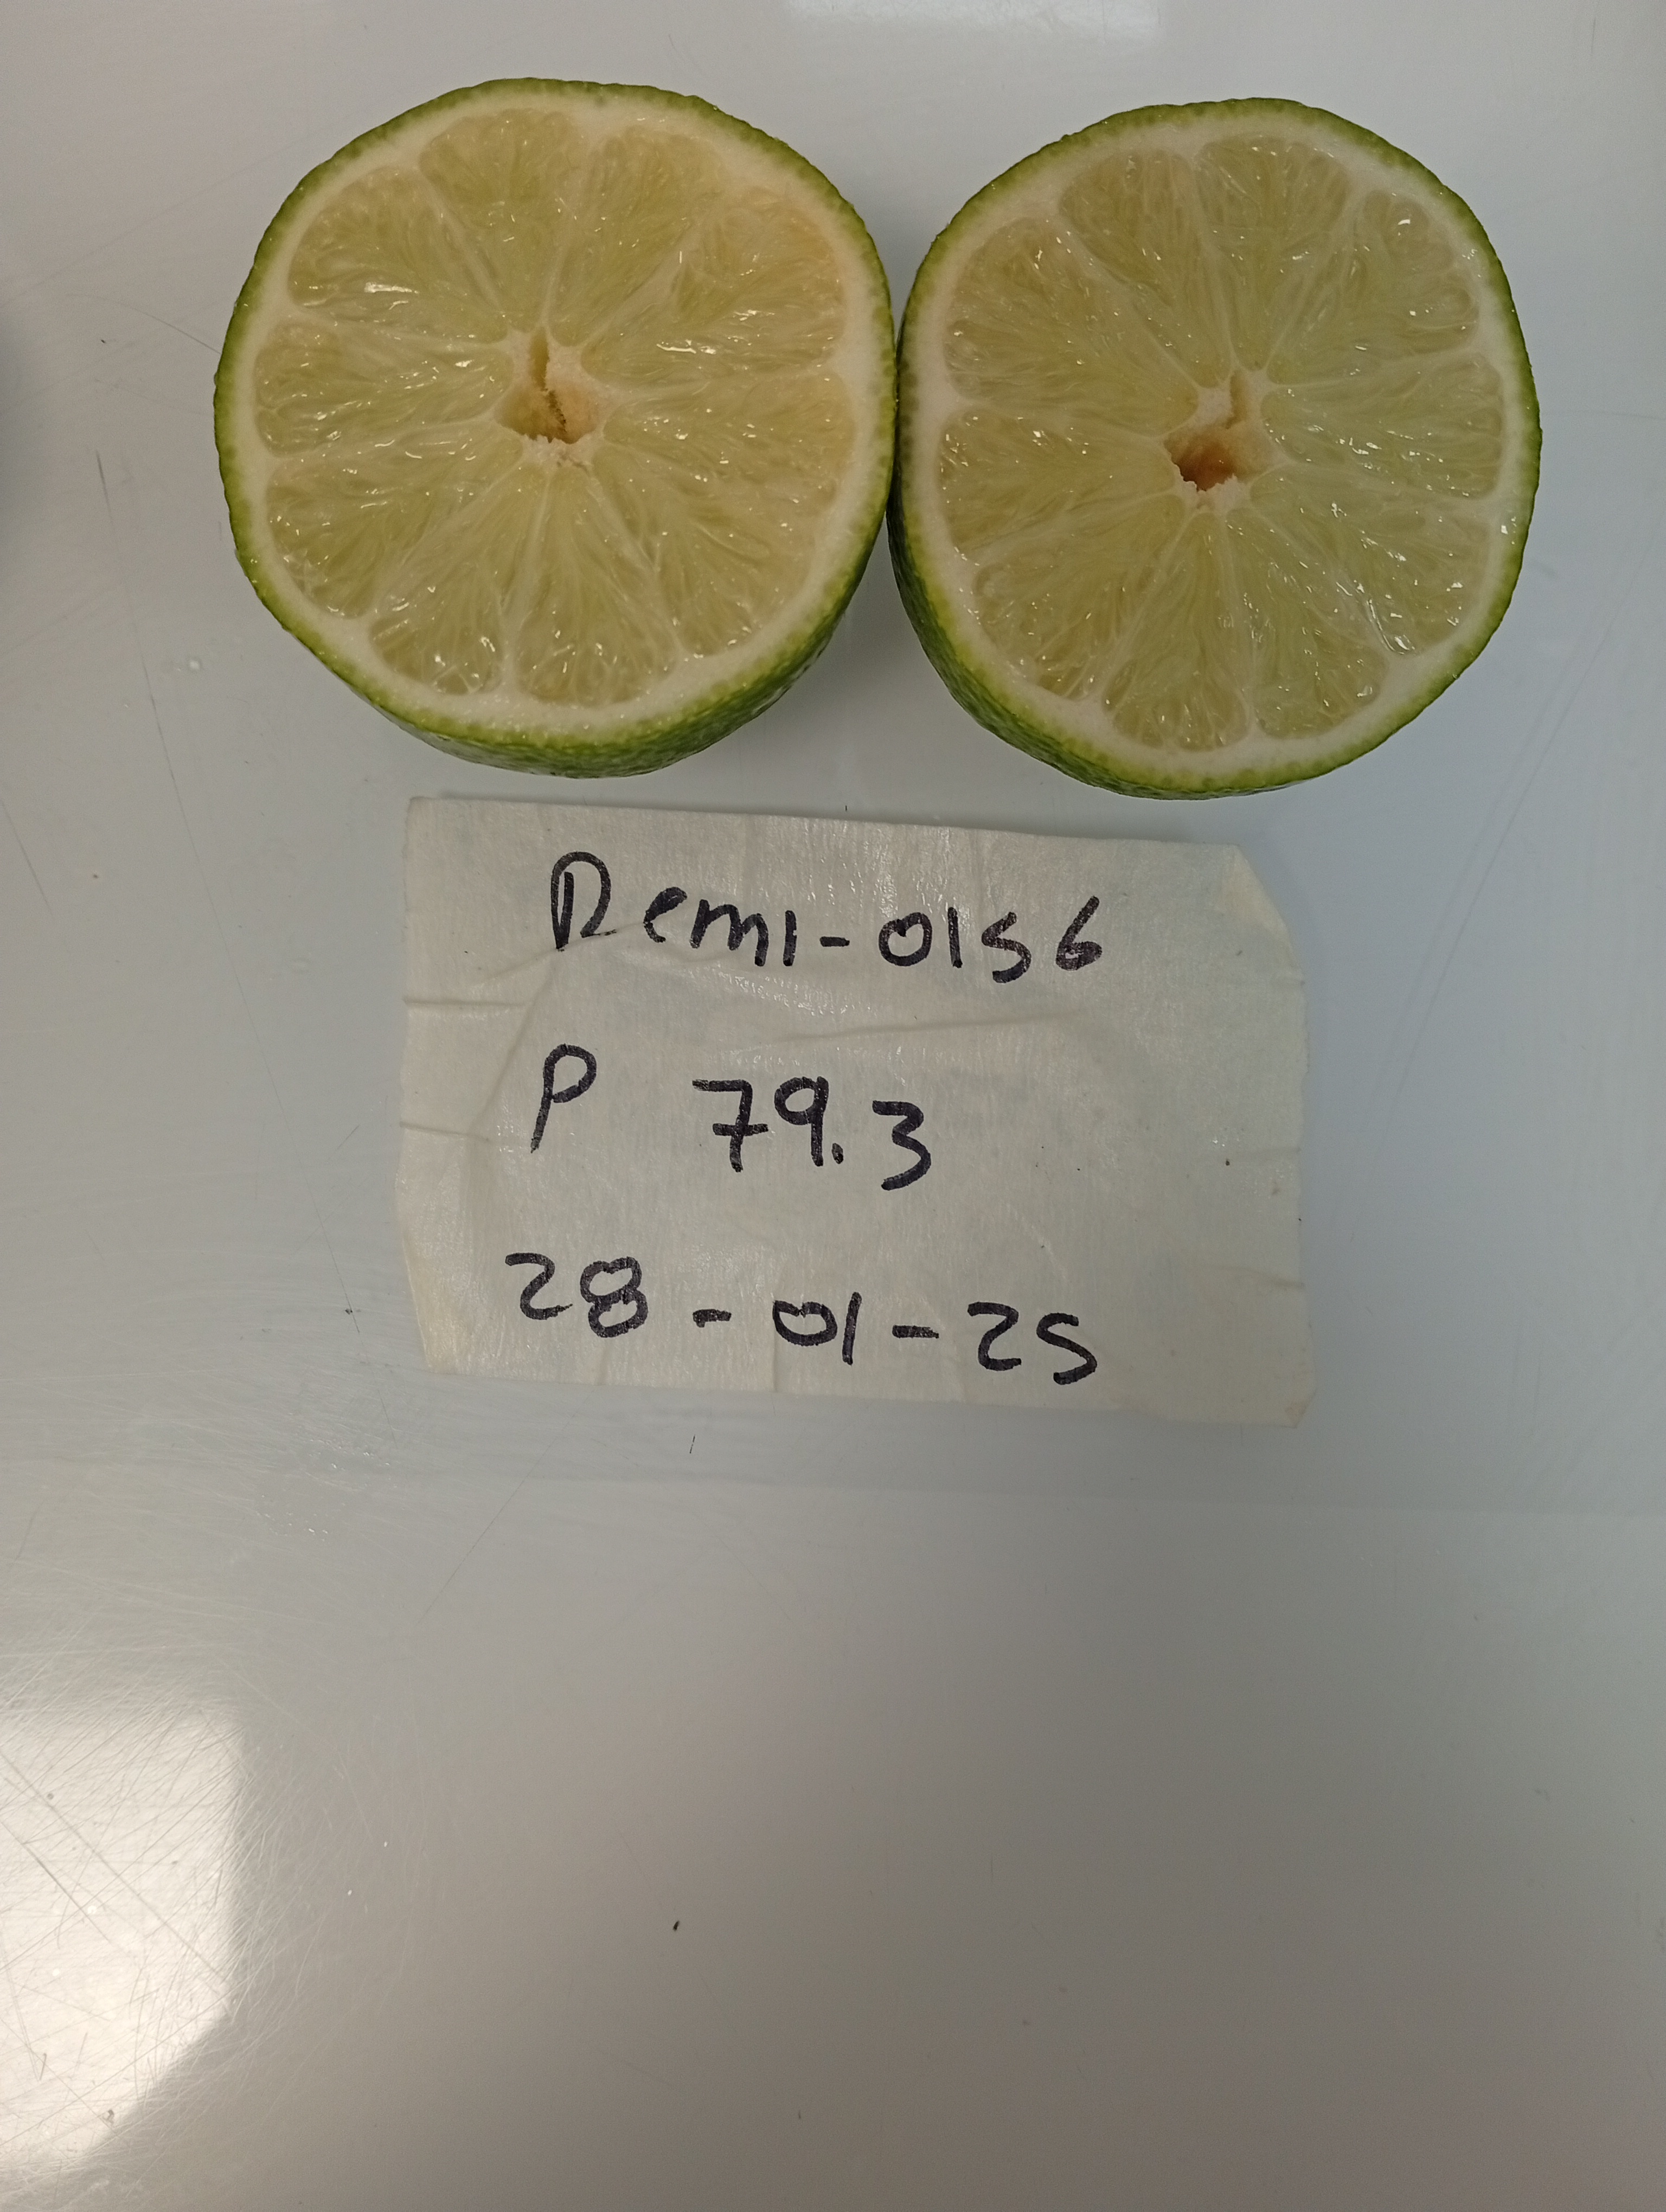 Remi-0156
P 79.3
28-01-25